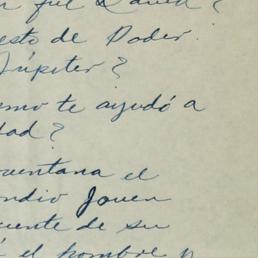 fué David?
esto de Poder.
Júpiter?
te ayudó a
dad?
el
ndio Joven
uente de su
el hombre y